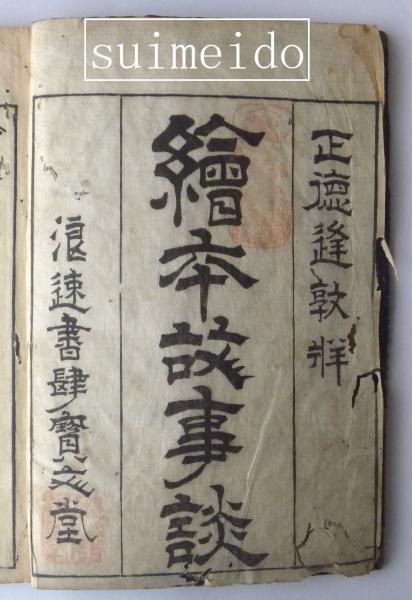 suimeido
正德逢敦牂
繪本故事談
浪速書肆寶文堂